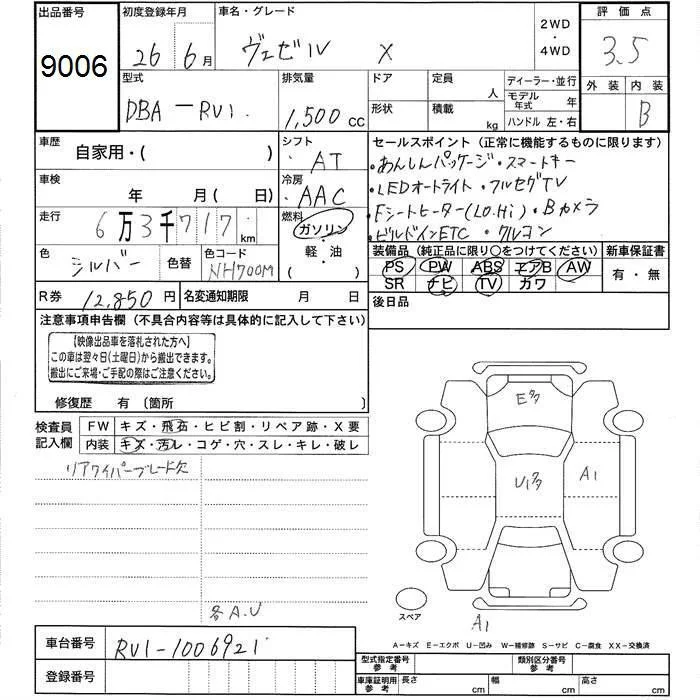 出品番号 9006
初度登録年月 26 6月
車名・グレード ヴェゼル X
2WD ・ 4WD
評価点 3.5
外装 内装 B
型式 DBA-RU1
排気量 1,500 CC
ドア 定員 人
形状 積載 kg
ディーラー・並行
モデル年式 年
ハンドル 左・右
車歴 自家用・( )
シフト AT
車検 年 月 ( 日)
冷房 AAC
走行 6万3千717 km
燃料 ガソリン・軽・油 ( )
色 シルバー 色替 色コード NH700M
セールスポイント (正常に機能するものに限ります)
・あんしんパッケージ・スマートキー
・LEDオートライト・フルセグTV
・Fシートヒーター(LO.Hi)・Bカメラ
・ビルドインETC・クルコン
装備品 (純正品に限り○をつけてください) 新車保証書
PS PW ABS エアB AW 有・無
SR ナビ TV カワ
R券 12,850円 名変通知期限 月 日
後日品
注意事項申告欄 (不具合内容等は具体的に記入して下さい)
【映像出品車を落札された方へ】
この車は翌々日(土曜日)から搬出できます。
搬出にご来場・ご手配の際はご注意ください。
修復歴 有 〔箇所 〕
検査員記入欄 FW キズ・飛石・ヒビ割・リペア跡・X要
内装 キズ・汚レ・コゲ・穴・スレ・キレ・破レ
リアワイパーブレード欠
Eタタ
U1タタ A1
スペア
各A.U
A1
A-キズ E-エクボ U-凹み W-補修跡 S-サビ C-腐食 XX-交換済
車台番号 RU1-1006921
登録番号
型式指定番号 参考 類別区分番号 参考
車庫証明用 参考 長さ cm 幅 cm 高さ cm